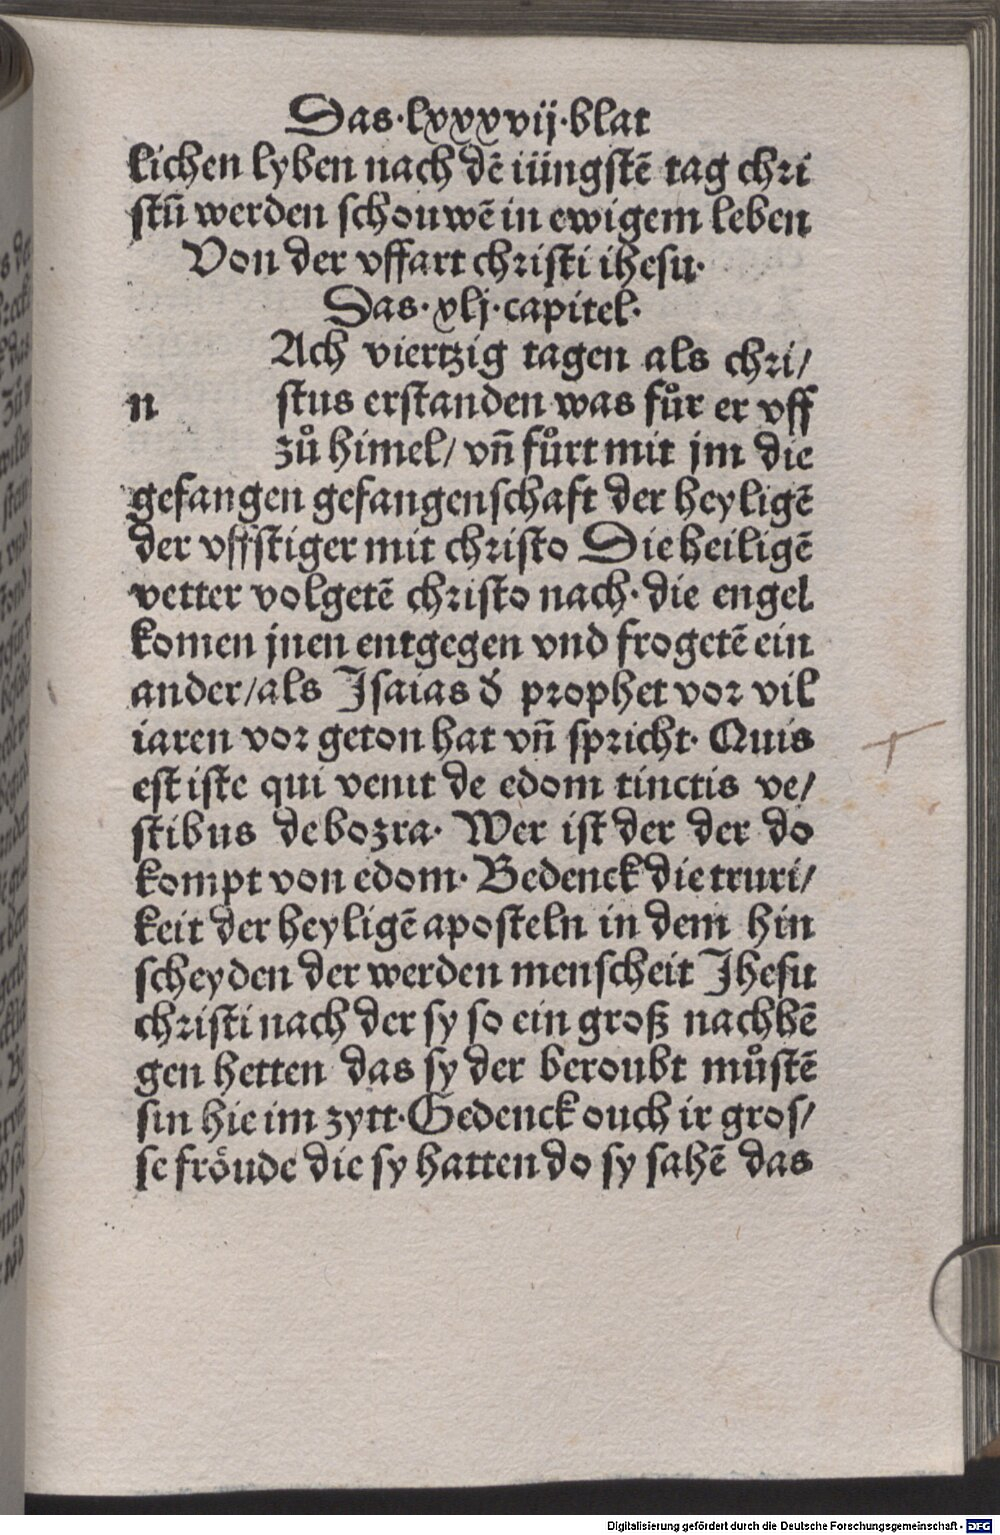 Das·lxxxvij·blat
lichen lyben nach dē iüngstē tag chri
stū werden schouwē in ewigem leben
Von der vffart christi ihesu·
Das·xlj·capitel·
Ach viertzig tagen als chri/
n stus erstanden was fůr er vff
zů himel/ vn̄ fůrt mit jm die
gefangen gefangenschaft der heyligē
der vffstiger mit christo Die heiligē
vetter volgetē christo nach· die engel
komen jnen entgegen vnd frogetē ein
ander/als Isaias d̕ prophet vor vil
iaren vor geton hat vn̄ spricht· Quis
est iste qui venit de edom tinctis ve/
stibus de bozra· Wer ist der der do
kompt von edom· Bedenck die truri/
keit der heyligē aposteln in dem hin
scheyden der werden menscheit Jhesu
christi nach der sy so ein groß nachhē
gen hetten das sy der beroubt můstē
sin hie im zytt·Gedenck ouch ir gros/
se fröude die sy hatten do sy sahē das
Digitalisierung gefördert durch die Deutsche Forschungsgemeinschaft - DFG